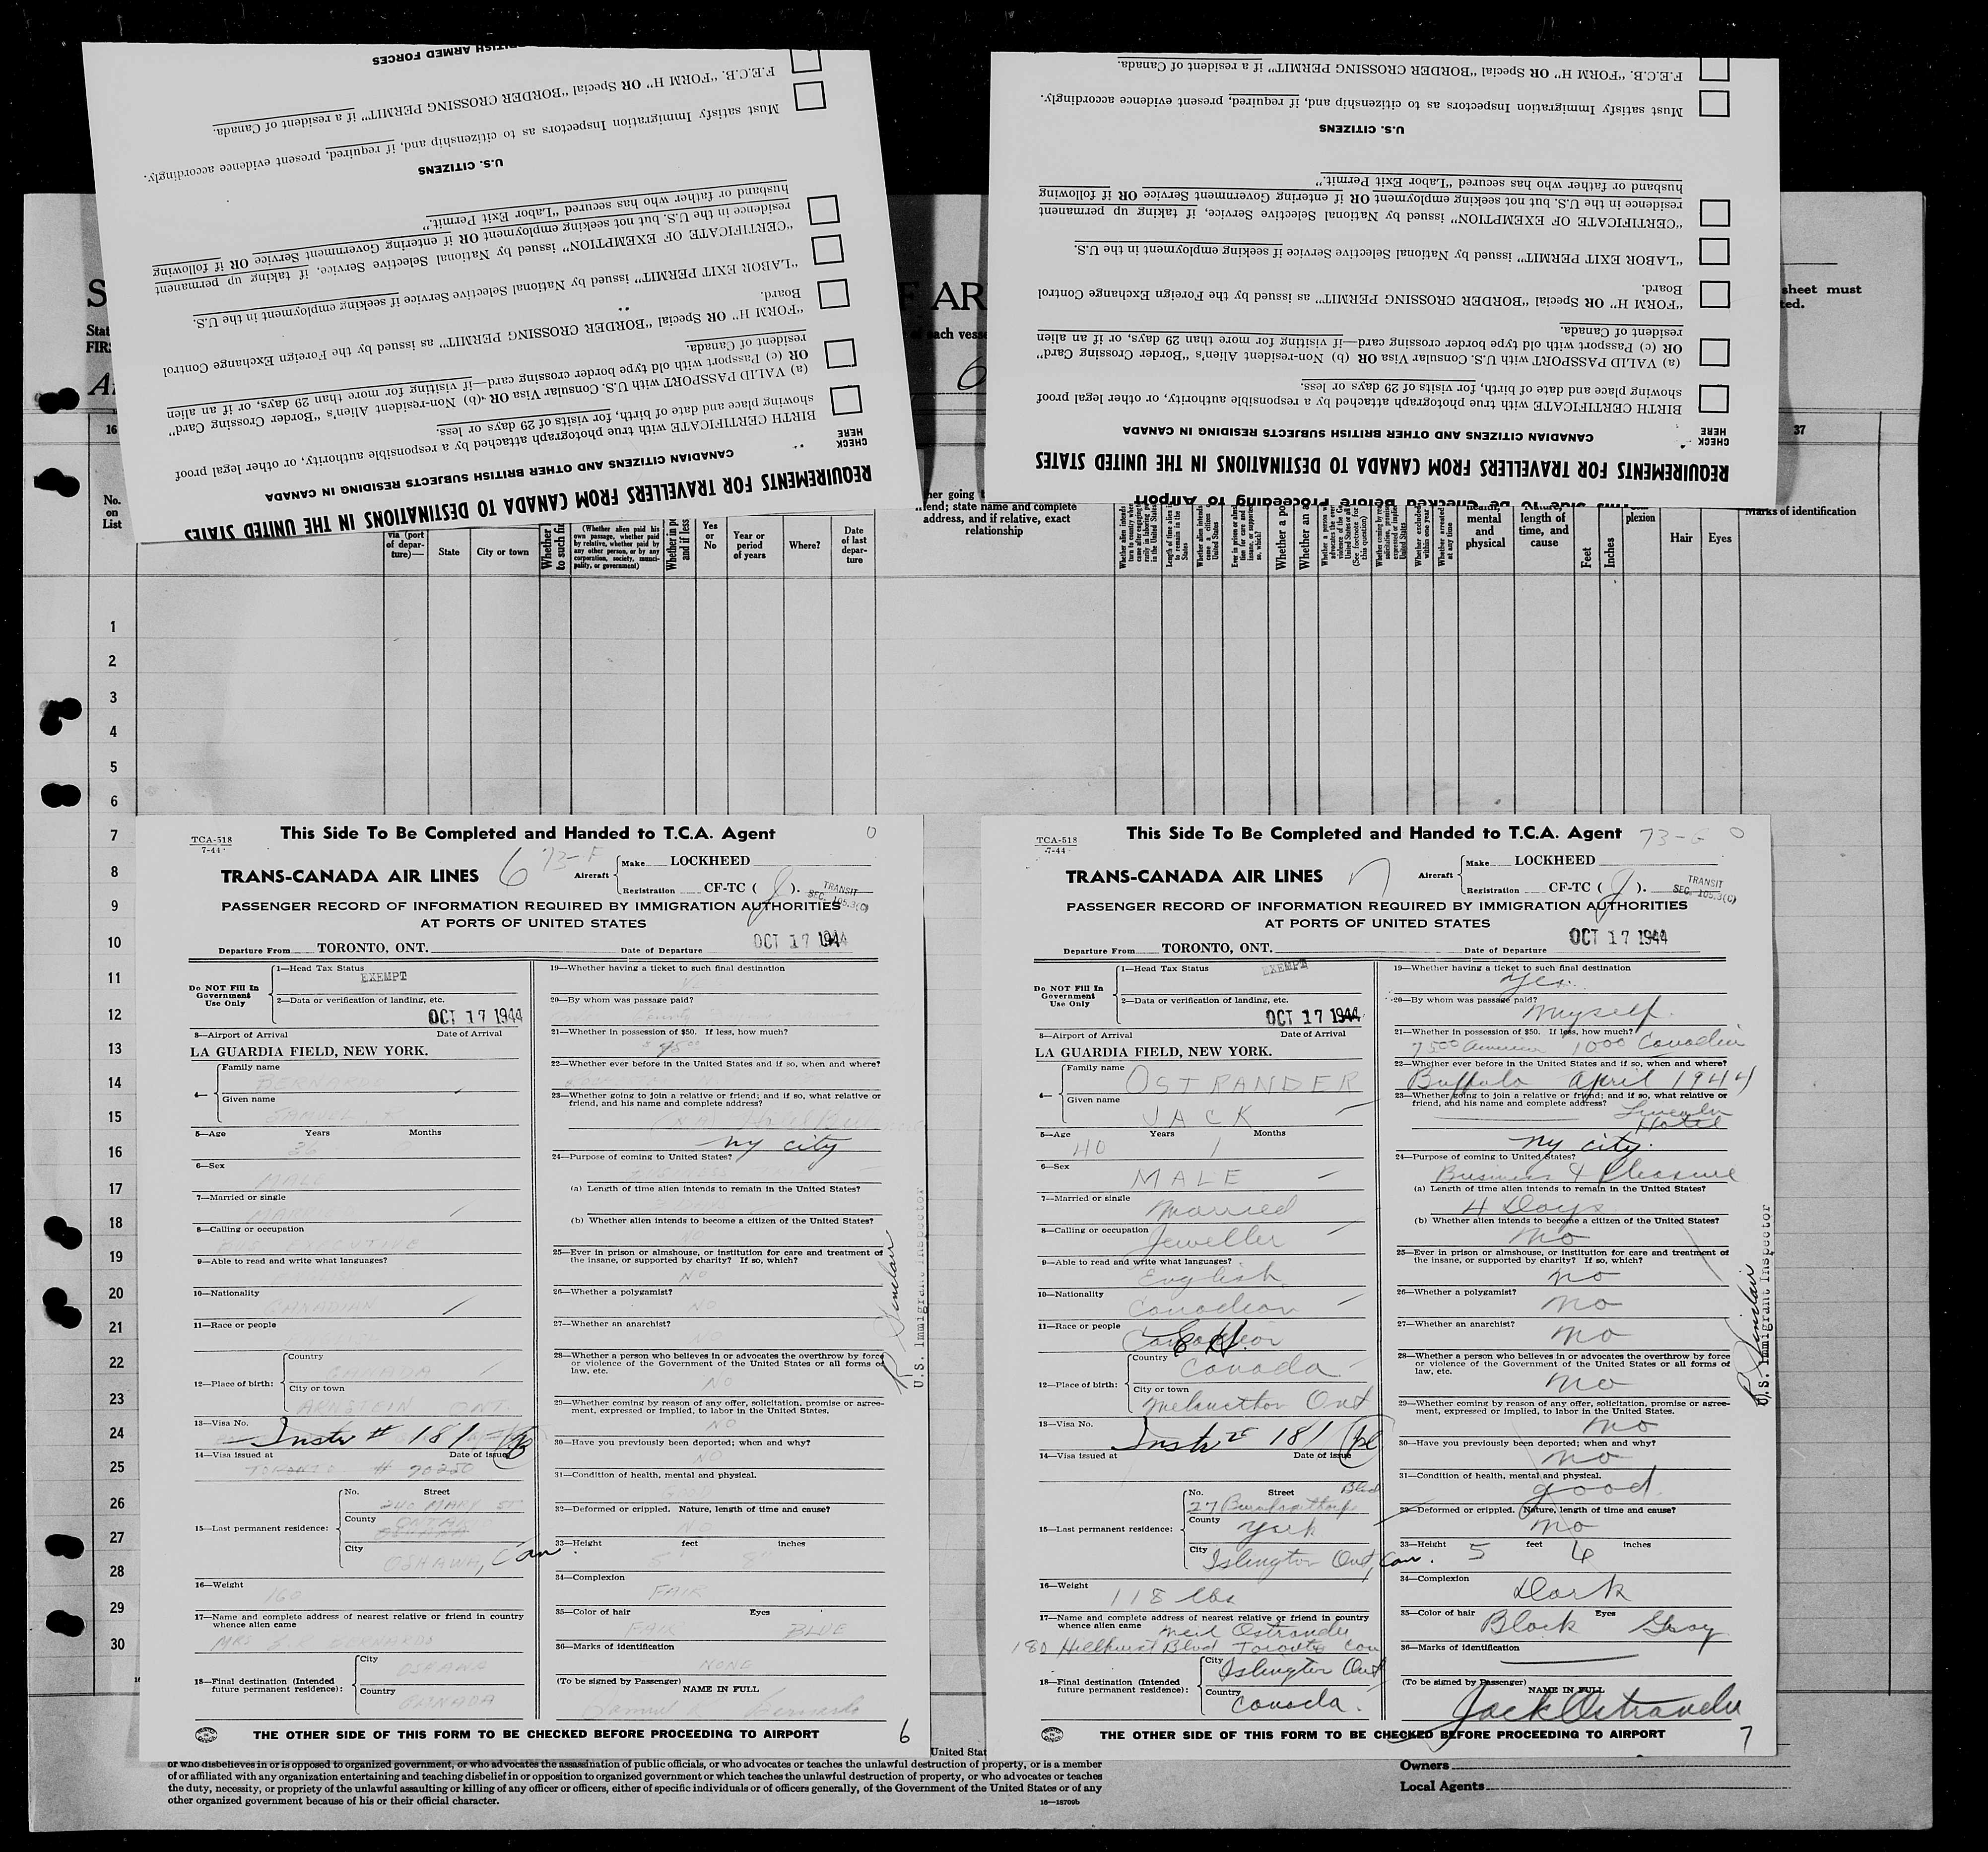 BRITISH ARMED FORCES
F.E.C.B. "FORM H" OR Special "BORDER CROSSING PERMIT" if a resident of Canada.
Must satisfy Immigration Inspectors as to citizenship and, if required, present evidence accordingly.
U.S. CITIZENS
husband or father who has secured "Labor Exit Permit."
residence in the U.S. but not seeking employment OR if entering Government Service OR if following
"CERTIFICATE OF EXEMPTION" issued by National Selective Service, if taking up permanent
"LABOR EXIT PERMIT" issued by National Selective Service if seeking employment in the U.S.
Board.
"FORM H" OR Special "BORDER CROSSING PERMIT" as issued by the Foreign Exchange Control
resident of Canada.
OR (c) Passport with old type border crossing card—if visiting for more than 29 days, or if an alien
(a) VALID PASSPORT with U.S. Consular Visa OR (b) Non-resident Alien's "Border Crossing Card"
showing place and date of birth, for visits of 29 days or less.
BIRTH CERTIFICATE with true photograph attached by a responsible authority, or other legal proof
CHECK HERE
CANADIAN CITIZENS AND OTHER BRITISH SUBJECTS RESIDING IN CANADA
REQUIREMENTS FOR TRAVELLERS FROM CANADA TO DESTINATIONS IN THE UNITED STATES
F.E.C.B. "FORM H" OR Special "BORDER CROSSING PERMIT" if a resident of Canada.
Must satisfy Immigration Inspectors as to citizenship and, if required, present evidence accordingly.
U.S. CITIZENS
husband or father who has secured "Labor Exit Permit."
residence in the U.S. but not seeking employment OR if entering Government Service OR if following
"CERTIFICATE OF EXEMPTION" issued by National Selective Service, if taking up permanent
"LABOR EXIT PERMIT" issued by National Selective Service if seeking employment in the U.S.
Board.
"FORM H" OR Special "BORDER CROSSING PERMIT" as issued by the Foreign Exchange Control
resident of Canada.
OR (c) Passport with old type border crossing card—if visiting for more than 29 days, or if an alien
(a) VALID PASSPORT with U.S. Consular Visa OR (b) Non-resident Alien's "Border Crossing Card"
showing place and date of birth, for visits of 29 days or less.
BIRTH CERTIFICATE with true photograph attached by a responsible authority, or other legal proof
CHECK HERE
CANADIAN CITIZENS AND OTHER BRITISH SUBJECTS RESIDING IN CANADA
REQUIREMENTS FOR TRAVELLERS FROM CANADA TO DESTINATIONS IN THE UNITED STATES
sheet must
16
37
No. on List
via (port of departure)
State
City or town
(Whether alien paid his own passage, whether paid by relative, whether paid by any other person, or by any corporation, society, municipality, or government)
Yes or No
Year or period of years
Where?
Date of last departure
address, and if relative, exact
relationship
mental and physical
length of time, and cause
Feet
Inches
Hair
Eyes
Marks of identification
1
2
3
4
5
6
7
8
9
10
11
12
13
14
15
16
17
18
19
20
21
22
23
24
25
26
27
28
29
30
TCA-518
7-44
This Side To Be Completed and Handed to T.C.A. Agent
TRANS-CANADA AIR LINES 6 73-F
Aircraft Make LOCKHEED
Registration CF-TC ( J ).
TRANSIT
SEC. 105.3(C)
PASSENGER RECORD OF INFORMATION REQUIRED BY IMMIGRATION AUTHORITIES
AT PORTS OF UNITED STATES
Departure From TORONTO, ONT. Date of Departure OCT 17 1944
Do NOT Fill In Government Use Only
1—Head Tax Status EXEMPT
2—Data or verification of landing, etc.
OCT 17 1944
3—Airport of Arrival Date of Arrival
LA GUARDIA FIELD, NEW YORK.
4— Family name BERNARD
Given name SAMUEL
5—Age Years Months
36
6—Sex
MALE
7—Married or single
MARRIED
8—Calling or occupation
EXECUTIVE
9—Able to read and write what languages?
10—Nationality
CANADIAN
11—Race or people
12—Place of birth: Country CANADA
City or town ARNSTEIN ONT
13—Visa No.
Instr # 181
14—Visa issued at Date of issue
TORONTO # 90250
15—Last permanent residence: No. Street
240 MARY ST
County ONTARIO
City OSHAWA, Can
16—Weight
160
17—Name and complete address of nearest relative or friend in country
whence alien came
MRS S.R. BERNARDO
18—Final destination (Intended
future permanent residence): City OSHAWA
Country CANADA
19—Whether having a ticket to such final destination
20—By whom was passage paid?
21—Whether in possession of $50. If less, how much?
22—Whether ever before in the United States and if so, when and where?
23—Whether going to join a relative or friend; and if so, what relative or
friend, and his name and complete address?
ny city
24—Purpose of coming to United States?
(a) Length of time alien intends to remain in the United States?
(b) Whether alien intends to become a citizen of the United States?
NO
25—Ever in prison or almshouse, or institution for care and treatment of
the insane, or supported by charity? If so, which?
NO
26—Whether a polygamist?
NO
27—Whether an anarchist?
NO
28—Whether a person who believes in or advocates the overthrow by force
or violence of the Government of the United States or all forms of
law, etc.
NO
29—Whether coming by reason of any offer, solicitation, promise or agree-
ment, expressed or implied, to labor in the United States.
NO
30—Have you previously been deported; when and why?
NO
31—Condition of health, mental and physical.
32—Deformed or crippled. Nature, length of time and cause?
NO
33—Height feet inches
5 8
34—Complexion
FAIR
35—Color of hair Eyes
FAIR BLUE
36—Marks of identification
NONE
(To be signed by Passenger)
NAME IN FULL
R Sinclair
U.S. Immigrant Inspector
THE OTHER SIDE OF THIS FORM TO BE CHECKED BEFORE PROCEEDING TO AIRPORT
6
TCA-518
7-44
This Side To Be Completed and Handed to T.C.A. Agent
TRANS-CANADA AIR LINES 7
Aircraft Make LOCKHEED
Registration CF-TC ( J ).
TRANSIT
SEC. 105.3(C)
PASSENGER RECORD OF INFORMATION REQUIRED BY IMMIGRATION AUTHORITIES
AT PORTS OF UNITED STATES
Departure From TORONTO, ONT. Date of Departure OCT 17 1944
Do NOT Fill In Government Use Only
1—Head Tax Status EXEMPT
2—Data or verification of landing, etc.
OCT 17 1944
3—Airport of Arrival Date of Arrival
LA GUARDIA FIELD, NEW YORK.
4— Family name OSTRANDER
Given name JACK
5—Age Years Months
40 1
6—Sex
MALE
7—Married or single
Married
8—Calling or occupation
Jeweller
9—Able to read and write what languages?
English
10—Nationality
Canadian
11—Race or people
Canadian
12—Place of birth: Country Canada
City or town Melancthon Ont
13—Visa No.
Instr # 181
14—Visa issued at Date of issue
15—Last permanent residence: No. Street
27 Burnhamthorpe Blvd
County York
City Islington Ont, Can.
16—Weight
118 lbs
17—Name and complete address of nearest relative or friend in country
whence alien came
Ostrander
180 Hillhurst Blvd Toronto Can
18—Final destination (Intended
future permanent residence): City Islington Ont
Country Canada.
19—Whether having a ticket to such final destination
Yes.
20—By whom was passage paid?
Myself.
21—Whether in possession of $50. If less, how much?
75 00 American 10 00 Canadian
22—Whether ever before in the United States and if so, when and where?
Buffalo April 1944
23—Whether going to join a relative or friend; and if so, what relative or
friend, and his name and complete address? Lincoln Hotel
ny city.
24—Purpose of coming to United States?
Business & Pleasure
(a) Length of time alien intends to remain in the United States?
4 Days
(b) Whether alien intends to become a citizen of the United States?
No
25—Ever in prison or almshouse, or institution for care and treatment of
the insane, or supported by charity? If so, which?
no
26—Whether a polygamist?
no
27—Whether an anarchist?
no
28—Whether a person who believes in or advocates the overthrow by force
or violence of the Government of the United States or all forms of
law, etc.
no
29—Whether coming by reason of any offer, solicitation, promise or agree-
ment, expressed or implied, to labor in the United States.
no
30—Have you previously been deported; when and why?
no
31—Condition of health, mental and physical.
good.
32—Deformed or crippled. Nature, length of time and cause?
no
33—Height 5 feet 4 inches
34—Complexion
Dark
35—Color of hair Black Eyes Gray
36—Marks of identification
(To be signed by Passenger)
NAME IN FULL
Jack Ostrander
R Sinclair
U.S. Immigrant Inspector
THE OTHER SIDE OF THIS FORM TO BE CHECKED BEFORE PROCEEDING TO AIRPORT
7
or who disbelieves in or is opposed to organized government, or who advocates the assassination of public officials, or who advocates or teaches the unlawful destruction of property, or is a member
of or affiliated with any organization entertaining and teaching disbelief in or opposition to organized government or which teaches the unlawful destruction of property, or who advocates or teaches
the duty, necessity, or propriety of the unlawful assaulting or killing of any officer or officers, either of specific individuals or of officers generally, of the Government of the United States or of any
other organized government because of his or their official character.
16—18709b
Owners
Local Agents